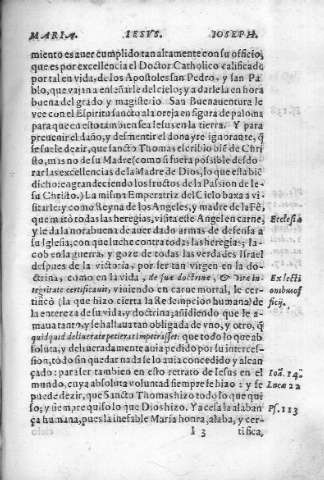 MARIA. IESVS. IOSEPH.
miento es auer cumplido tan altamente con su officio,
que es por excellencia el Doctor Catholico calificado
por tal en vida, de los Apostoles san Pedro, y san Pa
blo, que vajan a enseñarle del cielo; y a darle la en hora
buena del grado y magisterio. San Buenauentura le
vee con el Espiritu sancto a la oreja en figura de paloma
para que en esto tambien sea Iesus en la tierra. Y para
preuenir el daño, y desmentir el donayre ignorante, q̃
se suele dezir, que sancto Thomas escribio biẽ de Chri
sto, mas no de su Madre (como si fuera posible desdo
rar las excellencias de la Madre de Dios, lo que està biẽ
dicho: engrandeciendo los fructos de la Passion de Ie-
su Christo.) La misma Emperatriz del Cielo baxa a vi-
sitarle: y como Reyna de los Angeles, y madre de la Fè,
que matò todas las heregias, visita este Angel en carne,
y le da la norabuena de auer dado armas de defensa a
su Iglesia, con que luche contra todas las heregias; Ia-
cob en la guerra, y goze de todas las verdades Israel
despues de la victoria, por ser tan virgen en la do-
ctrina, como en la vida, de sua doctrina, & vitæ in-
tegritate certificauit, viniendo en carne mortal, le cer-
tificò (la que hizo cierta la Redempcion humana) de
la entereza de su vida, y doctrina; añidiendo que le a-
maua tanto, y se hallaua tan obligada de vno, y otro, q̃
quidquid deliberate petierat impetrasset: que todo lo que ab
soluta, y deliberadamente auia pedido por su interces-
sion, todo sin quedar nada se lo auia concedido y alcan
çado: para ser tambien en esto retrato de Iesus en el
mundo, cuya absoluta voluntad siempre se hizo: y se
puede dezir, que Sancto Thomas hizo todo lo que qui
so, y siempre quiso lo que Dios hizo. Ya cesa la alaban
ça humana, pues la inefable Maria honra, alaba, y cer-
I 3 tifica,
Ecclesia
Ex lecti
onibus of
ficij.
Ioã. 14.
Lucæ 22
Ps. 113